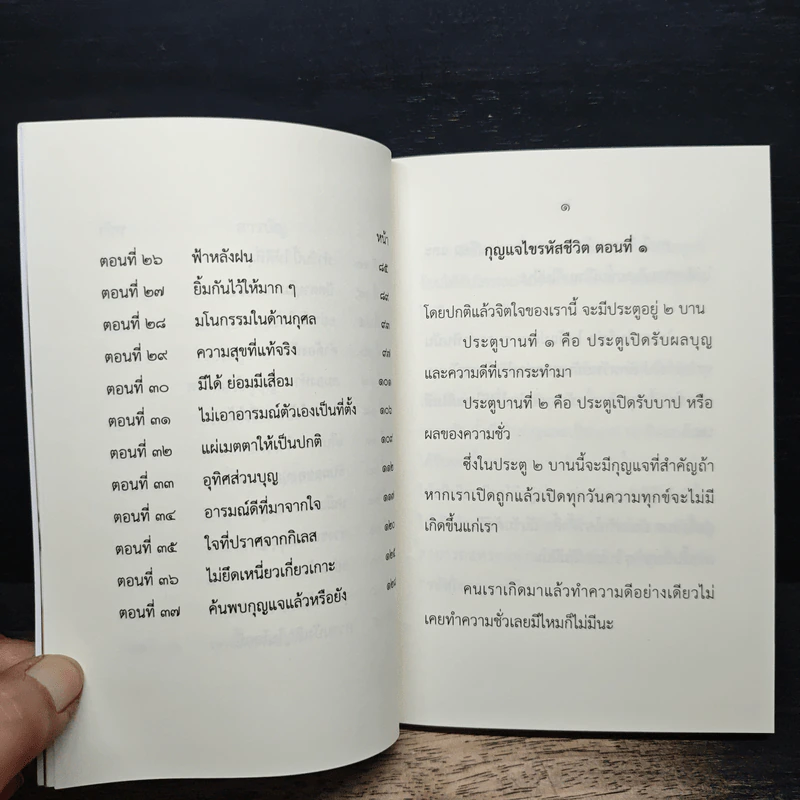 หน้า
ตอนที่ ๒๖ ฟ้าหลังฝน ๘๕
ตอนที่ ๒๗ ยิ้มกันไว้ให้มาก ๆ ๘๙
ตอนที่ ๒๘ มโนกรรมในด้านกุศล ๙๓
ตอนที่ ๒๙ ความสุขที่แท้จริง ๙๗
ตอนที่ ๓๐ มีได้ ย่อมมีเสื่อม ๑๐๑
ตอนที่ ๓๑ ไม่เอาอารมณ์ตัวเองเป็นที่ตั้ง ๑๐๖
ตอนที่ ๓๒ แผ่เมตตาให้เป็นปกติ ๑๐๙
ตอนที่ ๓๓ อุทิศส่วนบุญ ๑๑๒
ตอนที่ ๓๔ อารมณ์ดีที่มาจากใจ
ตอนที่ ๓๕ ใจที่ปราศจากกิเลส ๑๒๐
ตอนที่ ๓๖ ไม่ยึดเหนี่ยวเกี่ยวเกาะ
ตอนที่ ๓๗ ค้นพบกุญแจแล้วหรือยัง
๑
กุญแจไขรหัสชีวิต ตอนที่ ๑
โดยปกติแล้วจิตใจของเรานี้ จะมีประตูอยู่ ๒ บาน
ประตูบานที่ ๑ คือ ประตูเปิดรับผลบุญ
และความดีที่เรากระทำมา
ประตูบานที่ ๒ คือ ประตูเปิดรับบาป หรือ
ผลของความชั่ว
ซึ่งในประตู ๒ บานนี้จะมีกุญแจที่สำคัญถ้า
หากเราเปิดถูกแล้วเปิดทุกวันความทุกข์จะไม่มี
เกิดขึ้นแก่เรา
คนเราเกิดมาแล้วทำความดีอย่างเดียวไม่
เคยทำความชั่วเลยมีไหมก็ไม่มีนะ